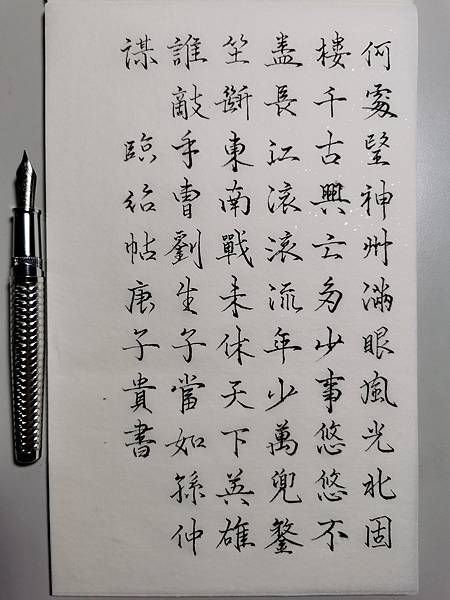 何處望神州滿眼風光北固
樓千古興亡多少事悠悠不
盡長江滾滾流年少萬兜鍪
坐斷東南戰未休天下英雄
誰敵手曹劉生子當如孫仲
謀 臨帖庚子貴書